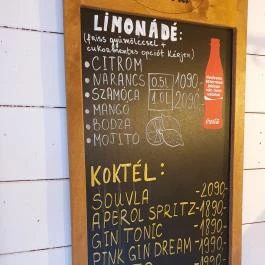 LIMONÁDÉ:
(friss gyümölccsel +
cukormentes opciót kérjen)
• CITROM
• NARANCS 0.5L 1090.-
• SZAMÓCA 1.0L 2090.-
• MANGÓ
• BODZA
• MOJITO
Coca-Cola
KOKTÉL:
SOUVLA -2090-
APEROL SPRITZ-1890-
GIN TONIC -1890-
PINK GIN DREAM-1990-